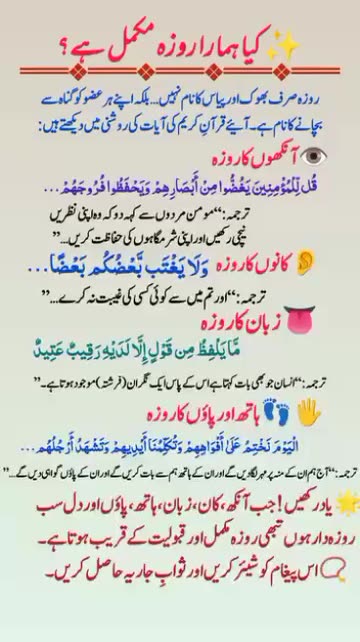 کیا ہمارا روزہ مکمل ہے؟
روزہ صرف بھوک اور پیاس کا نام نہیں... بلکہ اپنے ہر عضو کو گناہ سے
بچانے کا نام ہے۔ آیئے قرآنِ کریم کی آیات کی روشنی میں دیکھتے ہیں:
آنکھوں کا روزہ
قُل لِّلْمُؤْمِنِينَ يَغُضُّوا مِنْ أَبْصَارِهِمْ وَيَحْفَظُوا فُرُوجَهُمْ...
ترجمہ: “مومن مردوں سے کہہ دو کہ وہ اپنی نظریں
نیچی رکھیں اور اپنی شرمگاہوں کی حفاظت کریں...”
کانوں کا روزہ وَلَا يَغْتَب بَّعْضُكُم بَعْضًا...
ترجمہ: “اور تم میں سے کوئی کسی کی غیبت نہ کرے...”
زبان کا روزہ
مَّا يَلْفِظُ مِن قَوْلٍ إِلَّا لَدَيْهِ رَقِيبٌ عَتِيدٌ
ترجمہ: “انسان جو بھی بات کہتا ہے اس کے پاس ایک نگران (فرشتہ) موجود ہوتا ہے۔”
ہاتھ اور پاؤں کا روزہ
الْيَوْمَ نَخْتِمُ عَلَىٰ أَفْوَاهِهِمْ وَتُكَلِّمُنَا أَيْدِيهِمْ وَتَشْهَدُ أَرْجُلُهُم...
ترجمہ: “آج ہم ان کے منہ پر مہر لگا دیں گے اور ان کے ہاتھ ہم سے بات کریں گے اور ان کے پاؤں گواہی دیں گے...”
یاد رکھیں! جب آنکھ، کان، زبان، ہاتھ، پاؤں اور دل سب
روزہ دار ہوں تبھی روزہ مکمل اور قبولیت کے قریب ہوتا ہے۔
اس پیغام کو شیئر کریں اور ثوابِ جاریہ حاصل کریں۔